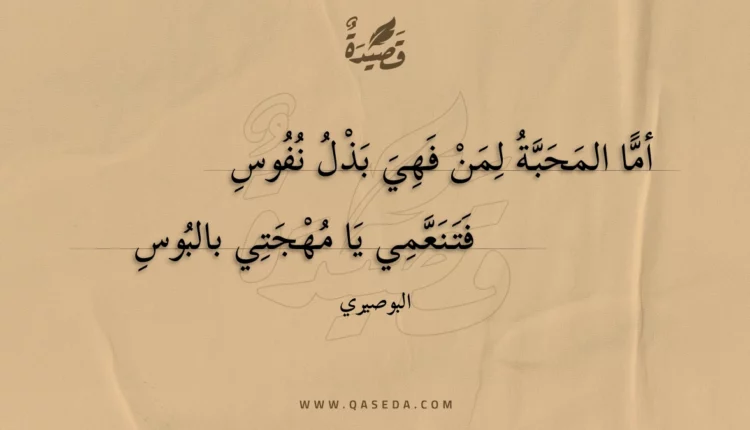 قَصِيدَةٌ
أمَّا المَحَبَّةُ لِمَنْ فَهِيَ بَذْلُ نُفُوسِ
فَتَنَعَّمِي يَا مُهْجَتِي بالبُوسِ
البوصيري
WWW.QASEDA.COM